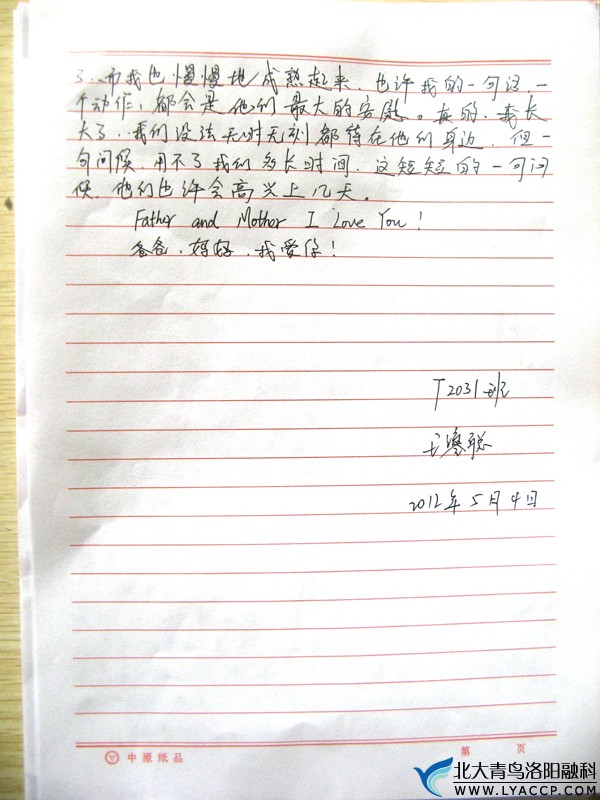 了. 而我也慢慢地成熟起来. 也许我的一句话. 一
个动作. 都会是他们最大的安慰。真的. 我长
大了. 我们没法无时无刻都待在他们身边. 但一
句问候. 用不了我们多长时间. 这短短的一句问
候. 他们也许会高兴上几天。
Father and Mother I Love You!
爸爸. 妈妈. 我爱你!
T2031班
2012年5月4日
中原纸品
第 页
北大青鸟洛阳融科
www.LYACCP.com